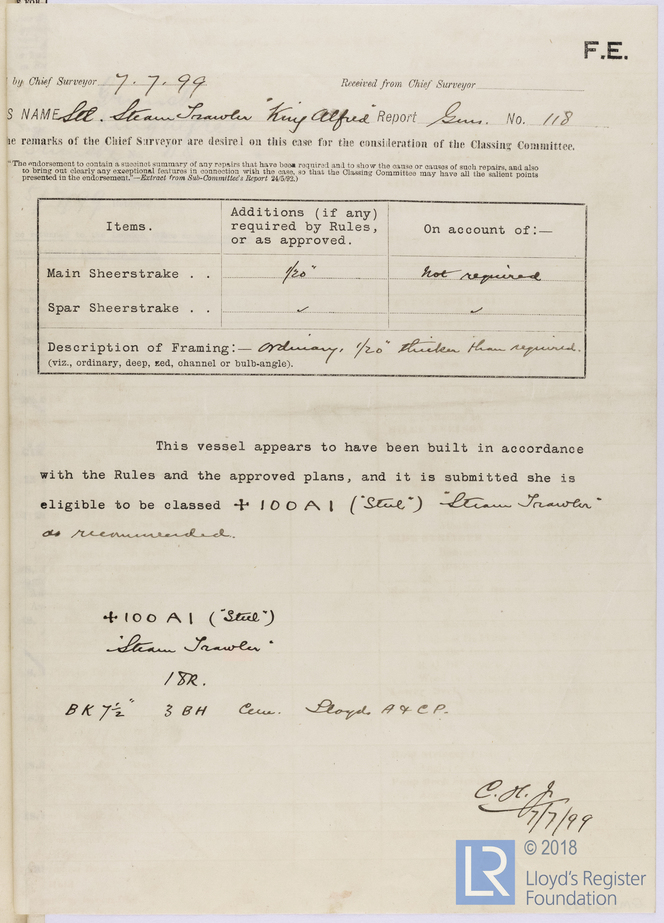 F.E.
by Chief Surveyor 7.7.99 Received from Chief Surveyor
S NAME Stl. Steam Trawler "King Alfred" Report Gms. No. 118
he remarks of the Chief Surveyor are desired on this case for the consideration of the Classing Committee.
"The endorsement to contain a succinct summary of any repairs that have been required and to show the cause or causes of such repairs, and also
to bring out clearly any exceptional features in connection with the case, so that the Classing Committee may have all the salient points
presented in the endorsement."—Extract from Sub-Committee's Report 24/5/92.)
Items. Additions (if any) required by Rules, or as approved. On account of:—
Main Sheerstrake . . 1/20" Not required
Spar Sheerstrake . . ✓ ✓
Description of Framing:— Ordinary, 1/20" thicker than required.
(viz., ordinary, deep, zed, channel or bulb-angle).
This vessel appears to have been built in accordance
with the Rules and the approved plans, and it is submitted she is
eligible to be classed ✠ 100 A 1 ("Steel") "Steam Trawler"
as recommended.
✠ 100 A 1 ("Steel")
"Steam Trawler"
BK 7½" 3 BH Cem. Lloyds A & C P.
7/7/99
LR
© 2018
Lloyd's Register
Foundation